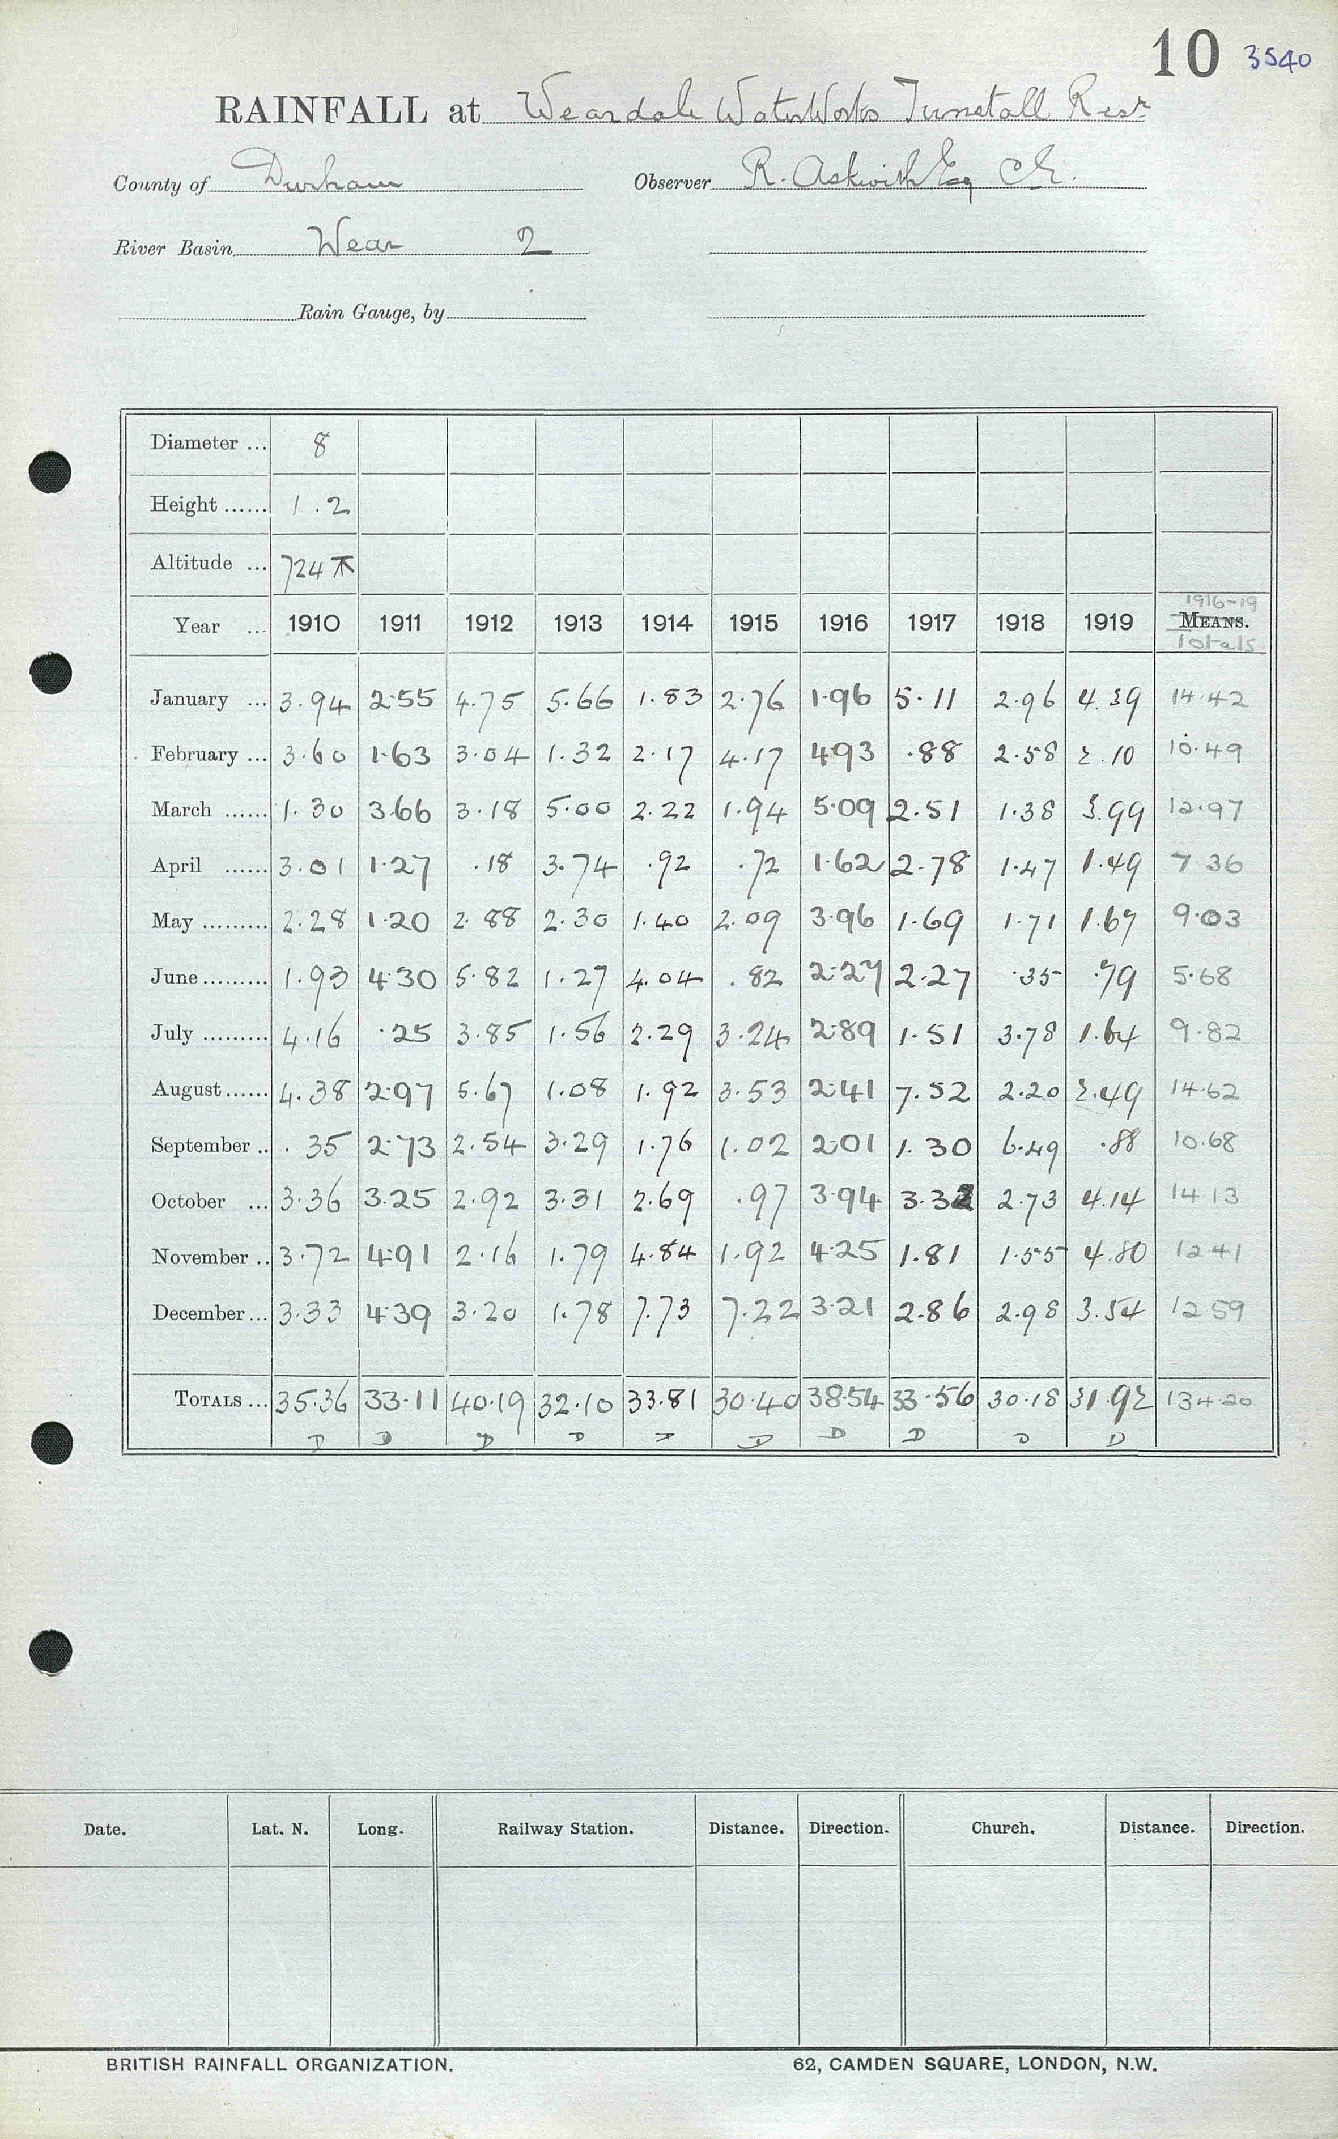 10 3540
RAINFALL at Weardale WaterWorks Tunstall Resr
County of Durham Observer R. Askwith Esq CE.
River Basin Wear 2
Rain Gauge, by
Diameter ... 8
Height ...... 1.2
Altitude ... 724
1916-19
Year ... 1910 1911 1912 1913 1914 1915 1916 1917 1918 1919 MEANS.
Totals
January ... 3.94 2.55 4.75 5.66 1.83 2.76 1.96 5.11 2.96 4.39 14.42
February ... 3.60 1.63 3.04 1.32 2.17 4.17 4.93 .88 2.58 2.10 10.49
March ...... 1.30 3.66 3.18 5.00 2.22 1.94 5.09 2.51 1.38 3.99 12.97
April ...... 3.01 1.27 .18 3.74 .92 .72 1.62 2.78 1.47 1.49 7.36
May ......... 2.28 1.20 2.88 2.30 1.40 2.09 3.96 1.69 1.71 1.67 9.03
June ......... 1.93 4.30 5.82 1.27 4.04 .82 2.27 2.27 .35 .79 5.68
July ......... 4.16 .25 3.85 1.56 2.29 3.24 2.89 1.51 3.78 1.64 9.82
August ...... 4.38 2.97 5.67 1.08 1.92 3.53 2.41 7.52 2.20 2.49 14.62
September .. .35 2.73 2.54 3.29 1.76 1.02 2.01 1.30 6.49 .88 10.68
October ... 3.36 3.25 2.92 3.31 2.69 .97 3.94 3.32 2.73 4.14 14.13
November .. 3.72 4.91 2.16 1.79 4.84 1.92 4.25 1.81 1.55 4.80 12.41
December ... 3.33 4.39 3.20 1.78 7.73 7.22 3.21 2.86 2.98 3.54 12.59
TOTALS ... 35.36 33.11 40.19 32.10 33.81 30.40 38.54 33.56 30.18 31.92 134.20
D D D D D D D D D D
Date. Lat. N. Long. Railway Station. Distance. Direction. Church. Distance. Direction.
BRITISH RAINFALL ORGANIZATION. 62, CAMDEN SQUARE, LONDON, N.W.